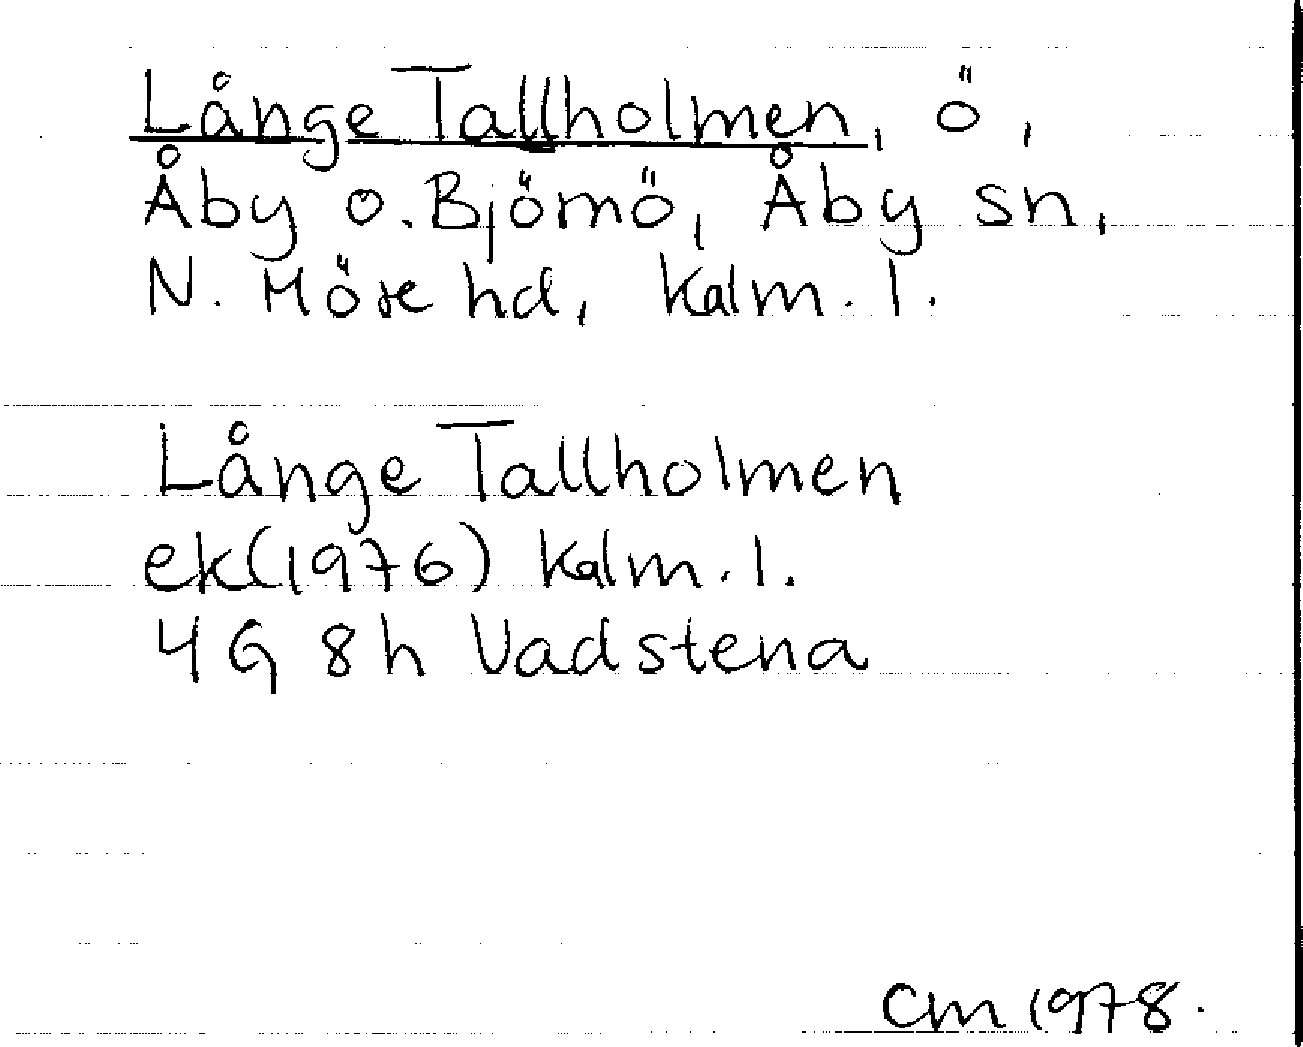 Långe Tallholmen, ö,
Åby o. Björnö, Åby sn,
N. Möre hd, Kalm. l.
Långe Tallholmen
ek(1976) Kalm. l.
4G 8h Vadstena
CM 1978.